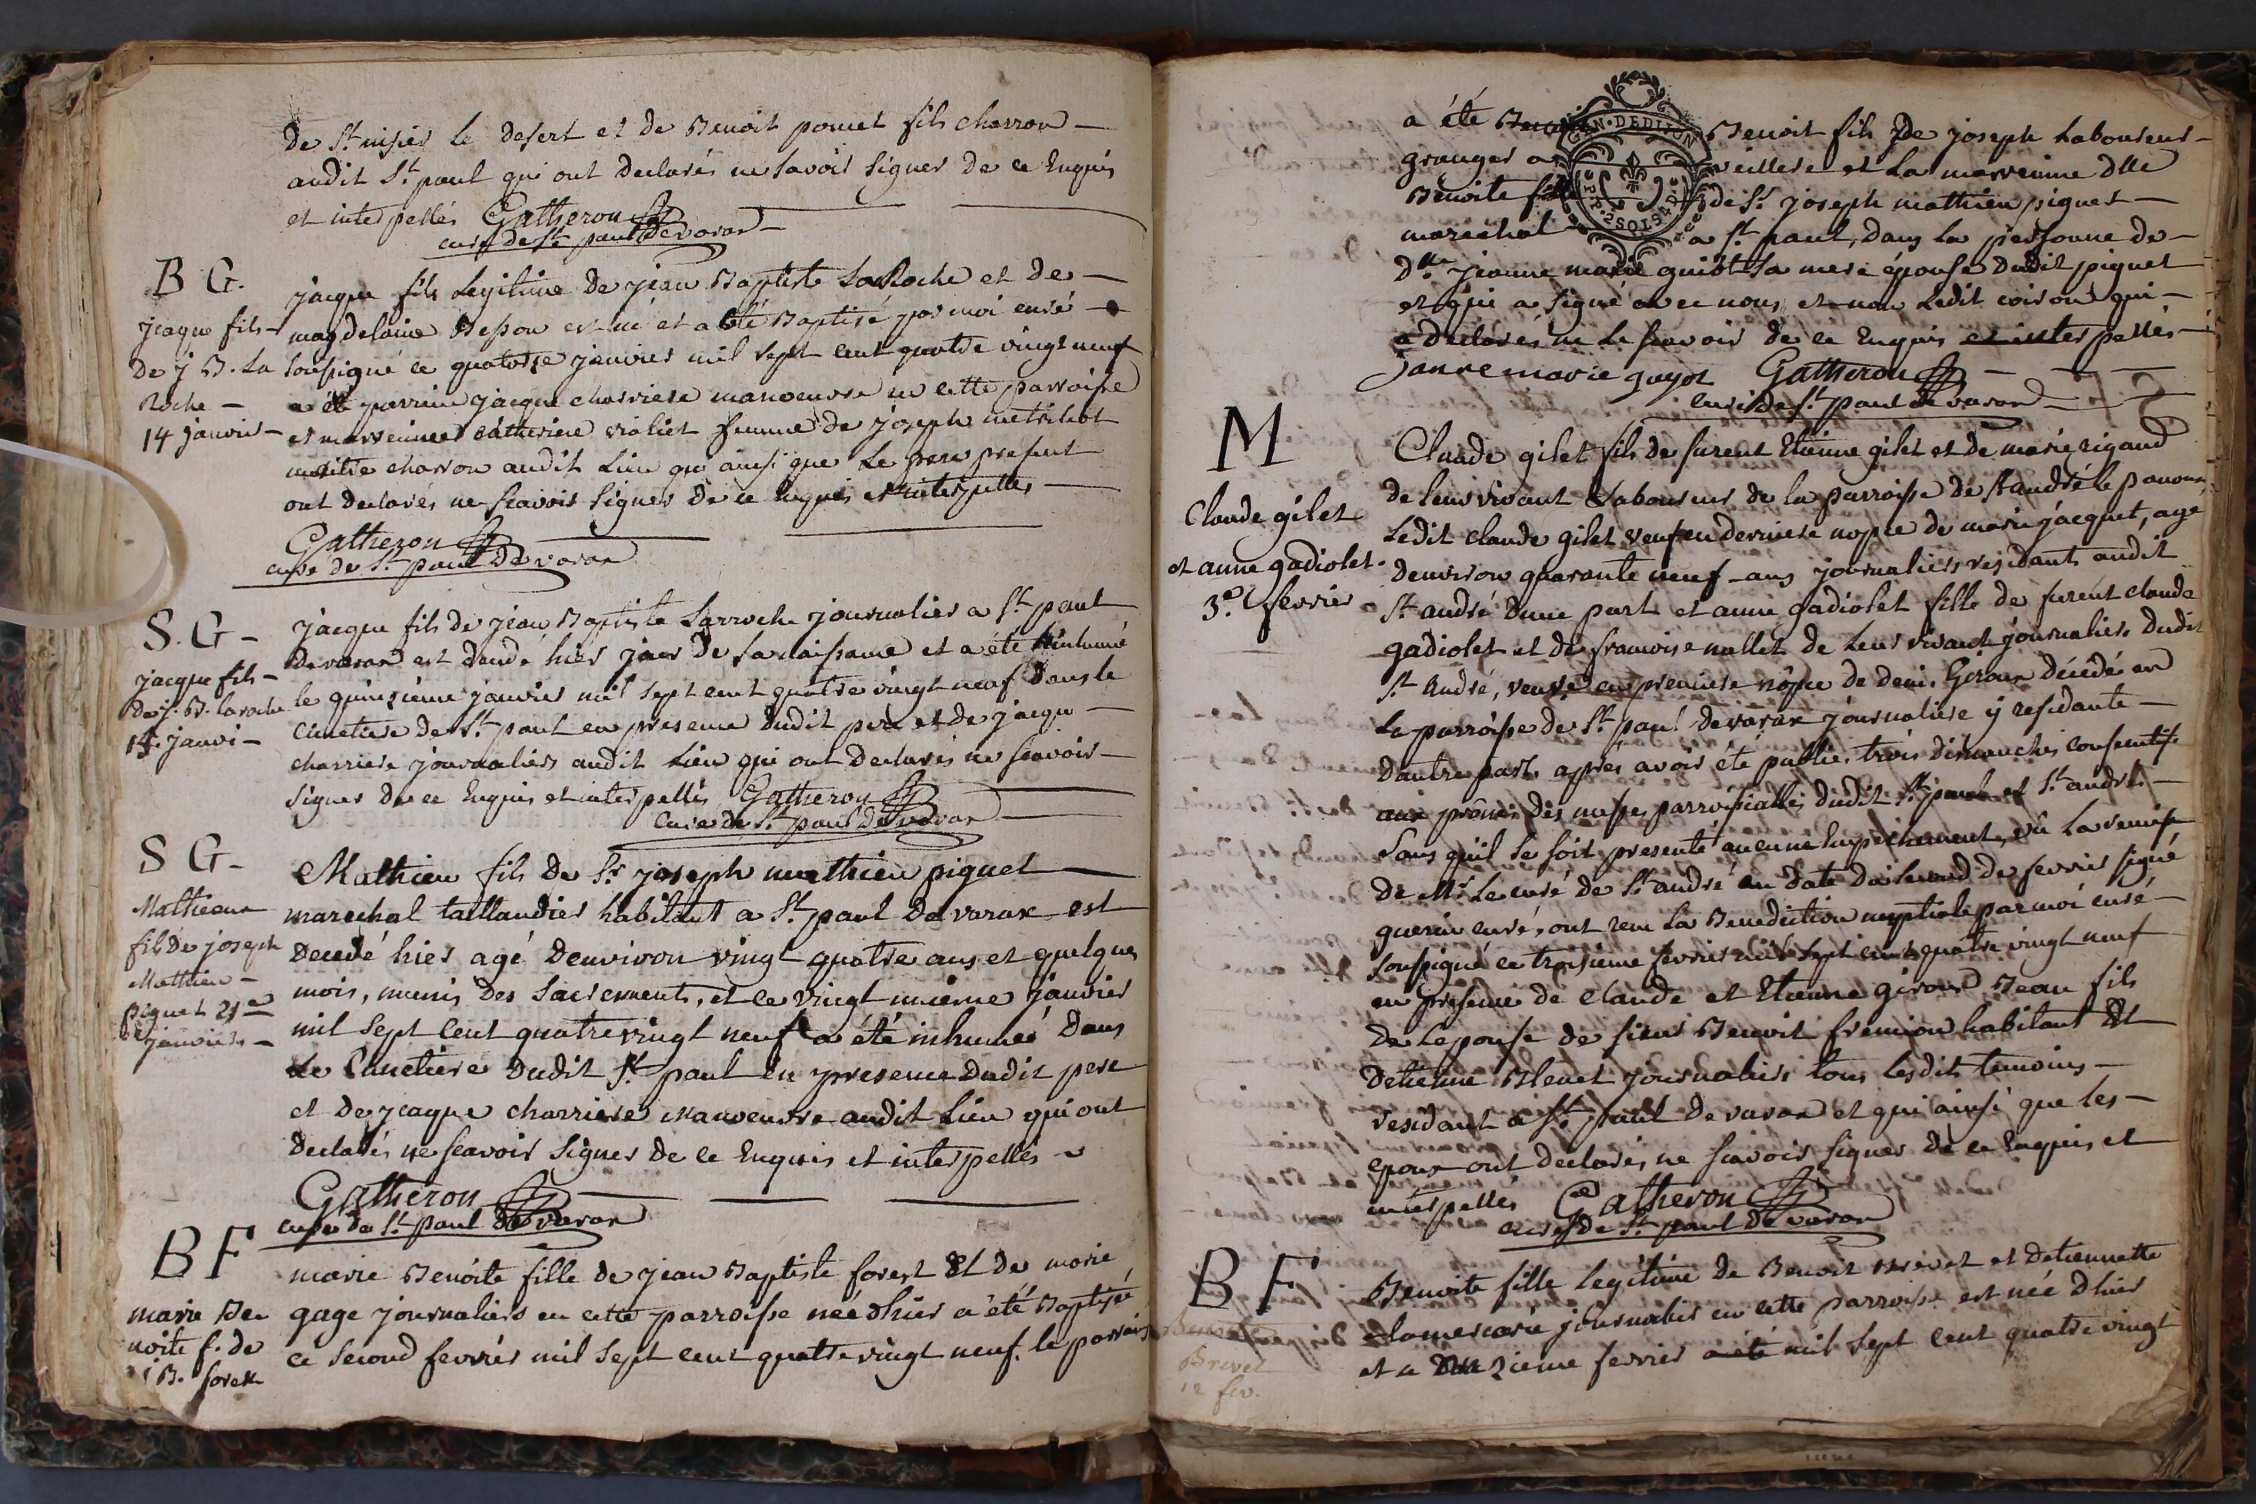 de St. nisier le desert et de Benoit poncet fils charron
audit St. paul qui ont declarés ne savoir signer de ce Enquis
et interpellés Gatheron
curé de St. paul de varax
B G.
jacque fils
de j B. La
Roche
14 janvier
jacque fils Legitime de jean Baptiste LaRoche et de
magdelaine Besson est né et a été Baptisé par moi curé
soussigné ce quatorze janvier mil sept cent quatre vingt neuf
a été parrein jacque charriere manoeuvre en cette parroisse
et marreinne catherine violiet femme de joseph
maitre charron audit Lieu qui ainsi que Le pere present
ont declarés ne scavoir signer de ce Enquis et interpelles
Gatheron
curé de St. paul de varax
S. G
jacque fils
de j. B. laroche
15 janvi
jacque fils de jean Baptiste Larroche journalier a St. paul
devarax est decedé hier jour de sa naissance et a été inhumé
le quinzieme janvier mil sept cent quatre vingt neuf dans le
cimetiere de St. paul en presence dudit pere et de jacque
charriere journaliers audit Lieu qui ont declarés ne scavoir
signer de ce Enquis et interpellés Gatheron
curé de St. paul de varax
S G
Mathieu
fils de joseph
Mathieu
piquet 21e
janvier
Mathieu fils de Sr. joseph mathieu piquet
marechal taillandier habitant a St. paul de varax est
decedé hier agé denviron vingt quatre ans et quelques
mois, munis des sacrements, et ce vingt unieme janvier
mil sept cent quatre vingt neuf a été inhumé dans
Le Cimetiere dudit St. paul en presence dudit pere
et de jcaque charriere manoeuvre audit Lieu qui ont
declarés ne scavoir signer de ce Enquis et interpellés
Gatheron
curé de St. paul de varax
B F
marie Be
noite f. de
j B. forest
marie Benoite fille de jean Baptiste forest Et de marie
gage journaliers en cette parroisse née dhier a été Baptisée
ce second fevrier mil sept cent quatre vingt neuf. le parrain
a été Benoit Benoit fils de joseph Laboureur
granger a veillere et La marreinne dlle
Benoite fille de Sr. joseph mathieu piquet
marechal a St. paul, dans La personne de
Dlle jeanne marie guiot sa mere épouse dudit piquet
et qui a signé avec nous et non Ledit
a declarés ne Le scavoir de ce Enquis et interpellés
janne marie guyot Gatheron
curé de St. paul de varax
GEN. DE DIJON
M
Claude gilet
et anne gadiolet
3e. fevrier
Claude gilet fils de furent Etienne gilet et de marie rigaud
de leur vivant Laboureurs de la parroisse de St andré le panoux
Ledit claude gilet veuf en derniere nopce de marie jacquet, agé
denviron quarante neuf ans journaliers residants audit
St. andré dune part et anne gadiolet fille de furent claude
gadiolet et de francoise nallet de Leur vivant journaliers dudit
St. André, veuve en premiere nopce de denis Geroux décédé en
La parroisse de St. paul devarax journaliere y residante
dautre part, apres avoir été publiés trois dimanches consecutifs
aux prônes des messes parroissialles dudit St. paul et St. andré
sans quil se soit presenté aucun Empechement, vû La remise
de Mr. Le curé de St. andré en date du second de fevrier signé
guerin curé, ont recu La Benediction nuptiale par moi curé
soussigné ce troisieme fevrier mil sept cent quatre vingt neuf
en presence de claude et Etienne géroux Beau fils
de Lepouse de sieur Benoit fremion habitant Et
detienne Blenet journaliers tous Lesdits temoins
residant a St. paul de varax et qui ainsi que les
epoux ont declarés ne scavoir signer de ce Enquis et
interpellés Gatheron
curé de St. paul de varax
B F
Brevet
12 fev.
Benoite fille legitime de Benoit Brevet et detiennette
journaliers en cette parroisse est née dhier
et a été mil sept cent quatre vingt